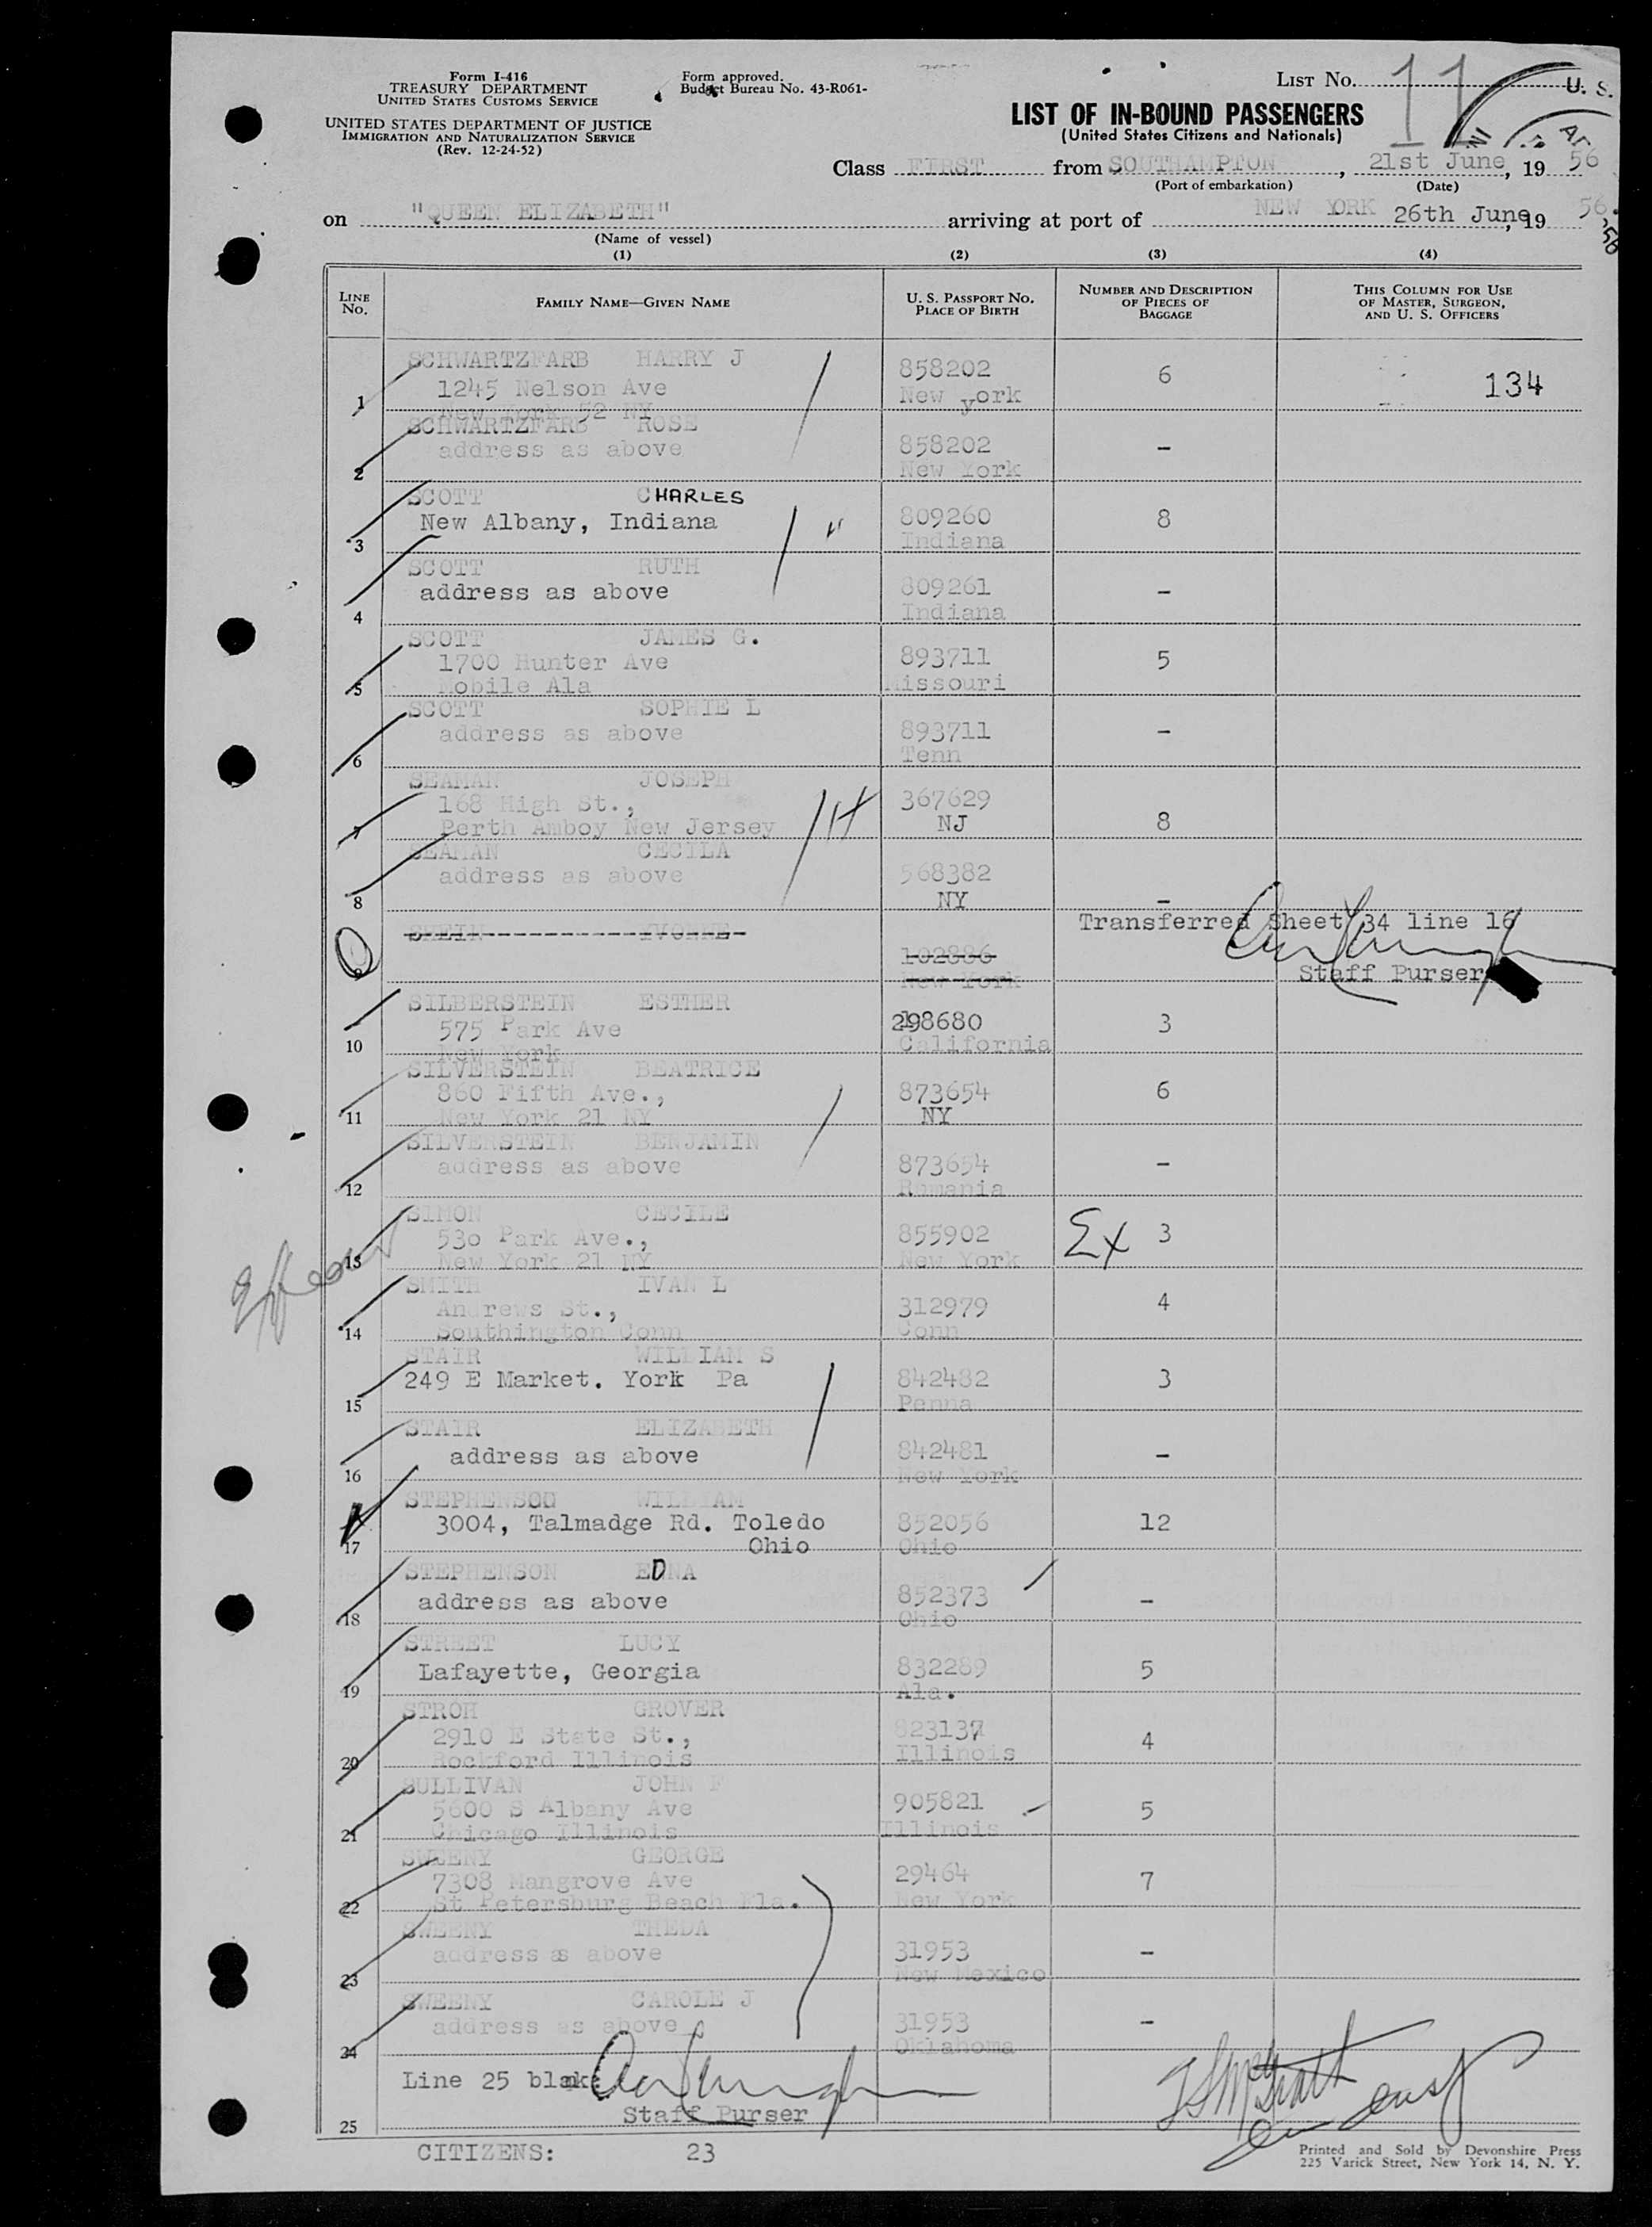 Form I-416
TREASURY DEPARTMENT
UNITED STATES CUSTOMS SERVICE
UNITED STATES DEPARTMENT OF JUSTICE
IMMIGRATION AND NATURALIZATION SERVICE
(Rev. 12-24-52)
Form approved.
Budget Bureau No. 43-R061-
LIST No. 11
U. S.
LIST OF IN-BOUND PASSENGERS
(United States Citizens and Nationals)
Class FIRST from SOUTHAMPTON, 21st June, 19 56
(Port of embarkation) (Date)
on "QUEEN ELIZABETH" arriving at port of NEW YORK 26th June, 19 56.
(Name of vessel)
(1) (2) (3) (4)
LINE No. FAMILY NAME—GIVEN NAME U. S. PASSPORT NO. PLACE OF BIRTH NUMBER AND DESCRIPTION OF PIECES OF BAGGAGE THIS COLUMN FOR USE OF MASTER, SURGEON, AND U. S. OFFICERS
SCHWARTZFARB HARRY J 858202 6 134
1245 Nelson Ave New york
1 New York 52 NY
SCHWARTZFARB ROSE 858202 -
address as above New York
2
SCOTT CHARLES 809260 8
New Albany, Indiana Indiana
3
SCOTT RUTH 809261 -
address as above Indiana
4
SCOTT JAMES G. 893711 5
1700 Hunter Ave Missouri
5 Mobile Ala
SCOTT SOPHIE L 893711 -
address as above Tenn
6
SEAMAN JOSEPH 367629
168 High St., NJ 8
7 Perth Amboy New Jersey
SEAMAN CECILA 568382
address as above NY -
8
SHEIN IVONNE 102886 Transferred Sheet 34 line 16
9 New York Staff Purser
SILBERSTEIN ESTHER 298680 3
575 Park Ave California
10 New York
SILVERSTEIN BEATRICE 873654 6
860 Fifth Ave., NY
11 New York 21 NY
SILVERSTEIN BENJAMIN 873654 -
address as above Rumania
12
SIMON CECILE 855902 Ex 3
530 Park Ave., New York
13 New York 21 NY
SMITH IVAN L 312979 4
Andrews St., Conn
14 Southington Conn
STAIR WILLIAM S 842482 3
249 E Market. York Pa Penna
15
STAIR ELIZABETH 842481 -
address as above New York
16
STEPHENSON WILLIAM 852056 12
3004, Talmadge Rd. Toledo Ohio
17 Ohio
STEPHENSON EDNA 852373 -
address as above Ohio
18
STREET LUCY 832289 5
Lafayette, Georgia Ala.
19
STROH GROVER 823137 4
2910 E State St., Illinois
20 Rockford Illinois
SULLIVAN JOHN F 905821 5
5600 S Albany Ave Illinois
21 Chicago Illinois
SWEENY GEORGE 29464 7
7308 Mangrove Ave New York
22 St Petersburg Beach Fla.
SWEENY THEDA 31953 -
address as above New Mexico
23
SWEENY CAROLE J 31953 -
address as above Oklahoma
24
Line 25 blank
Staff Purser
25
CITIZENS: 23
Printed and Sold by Devonshire Press
225 Varick Street, New York 14, N. Y.